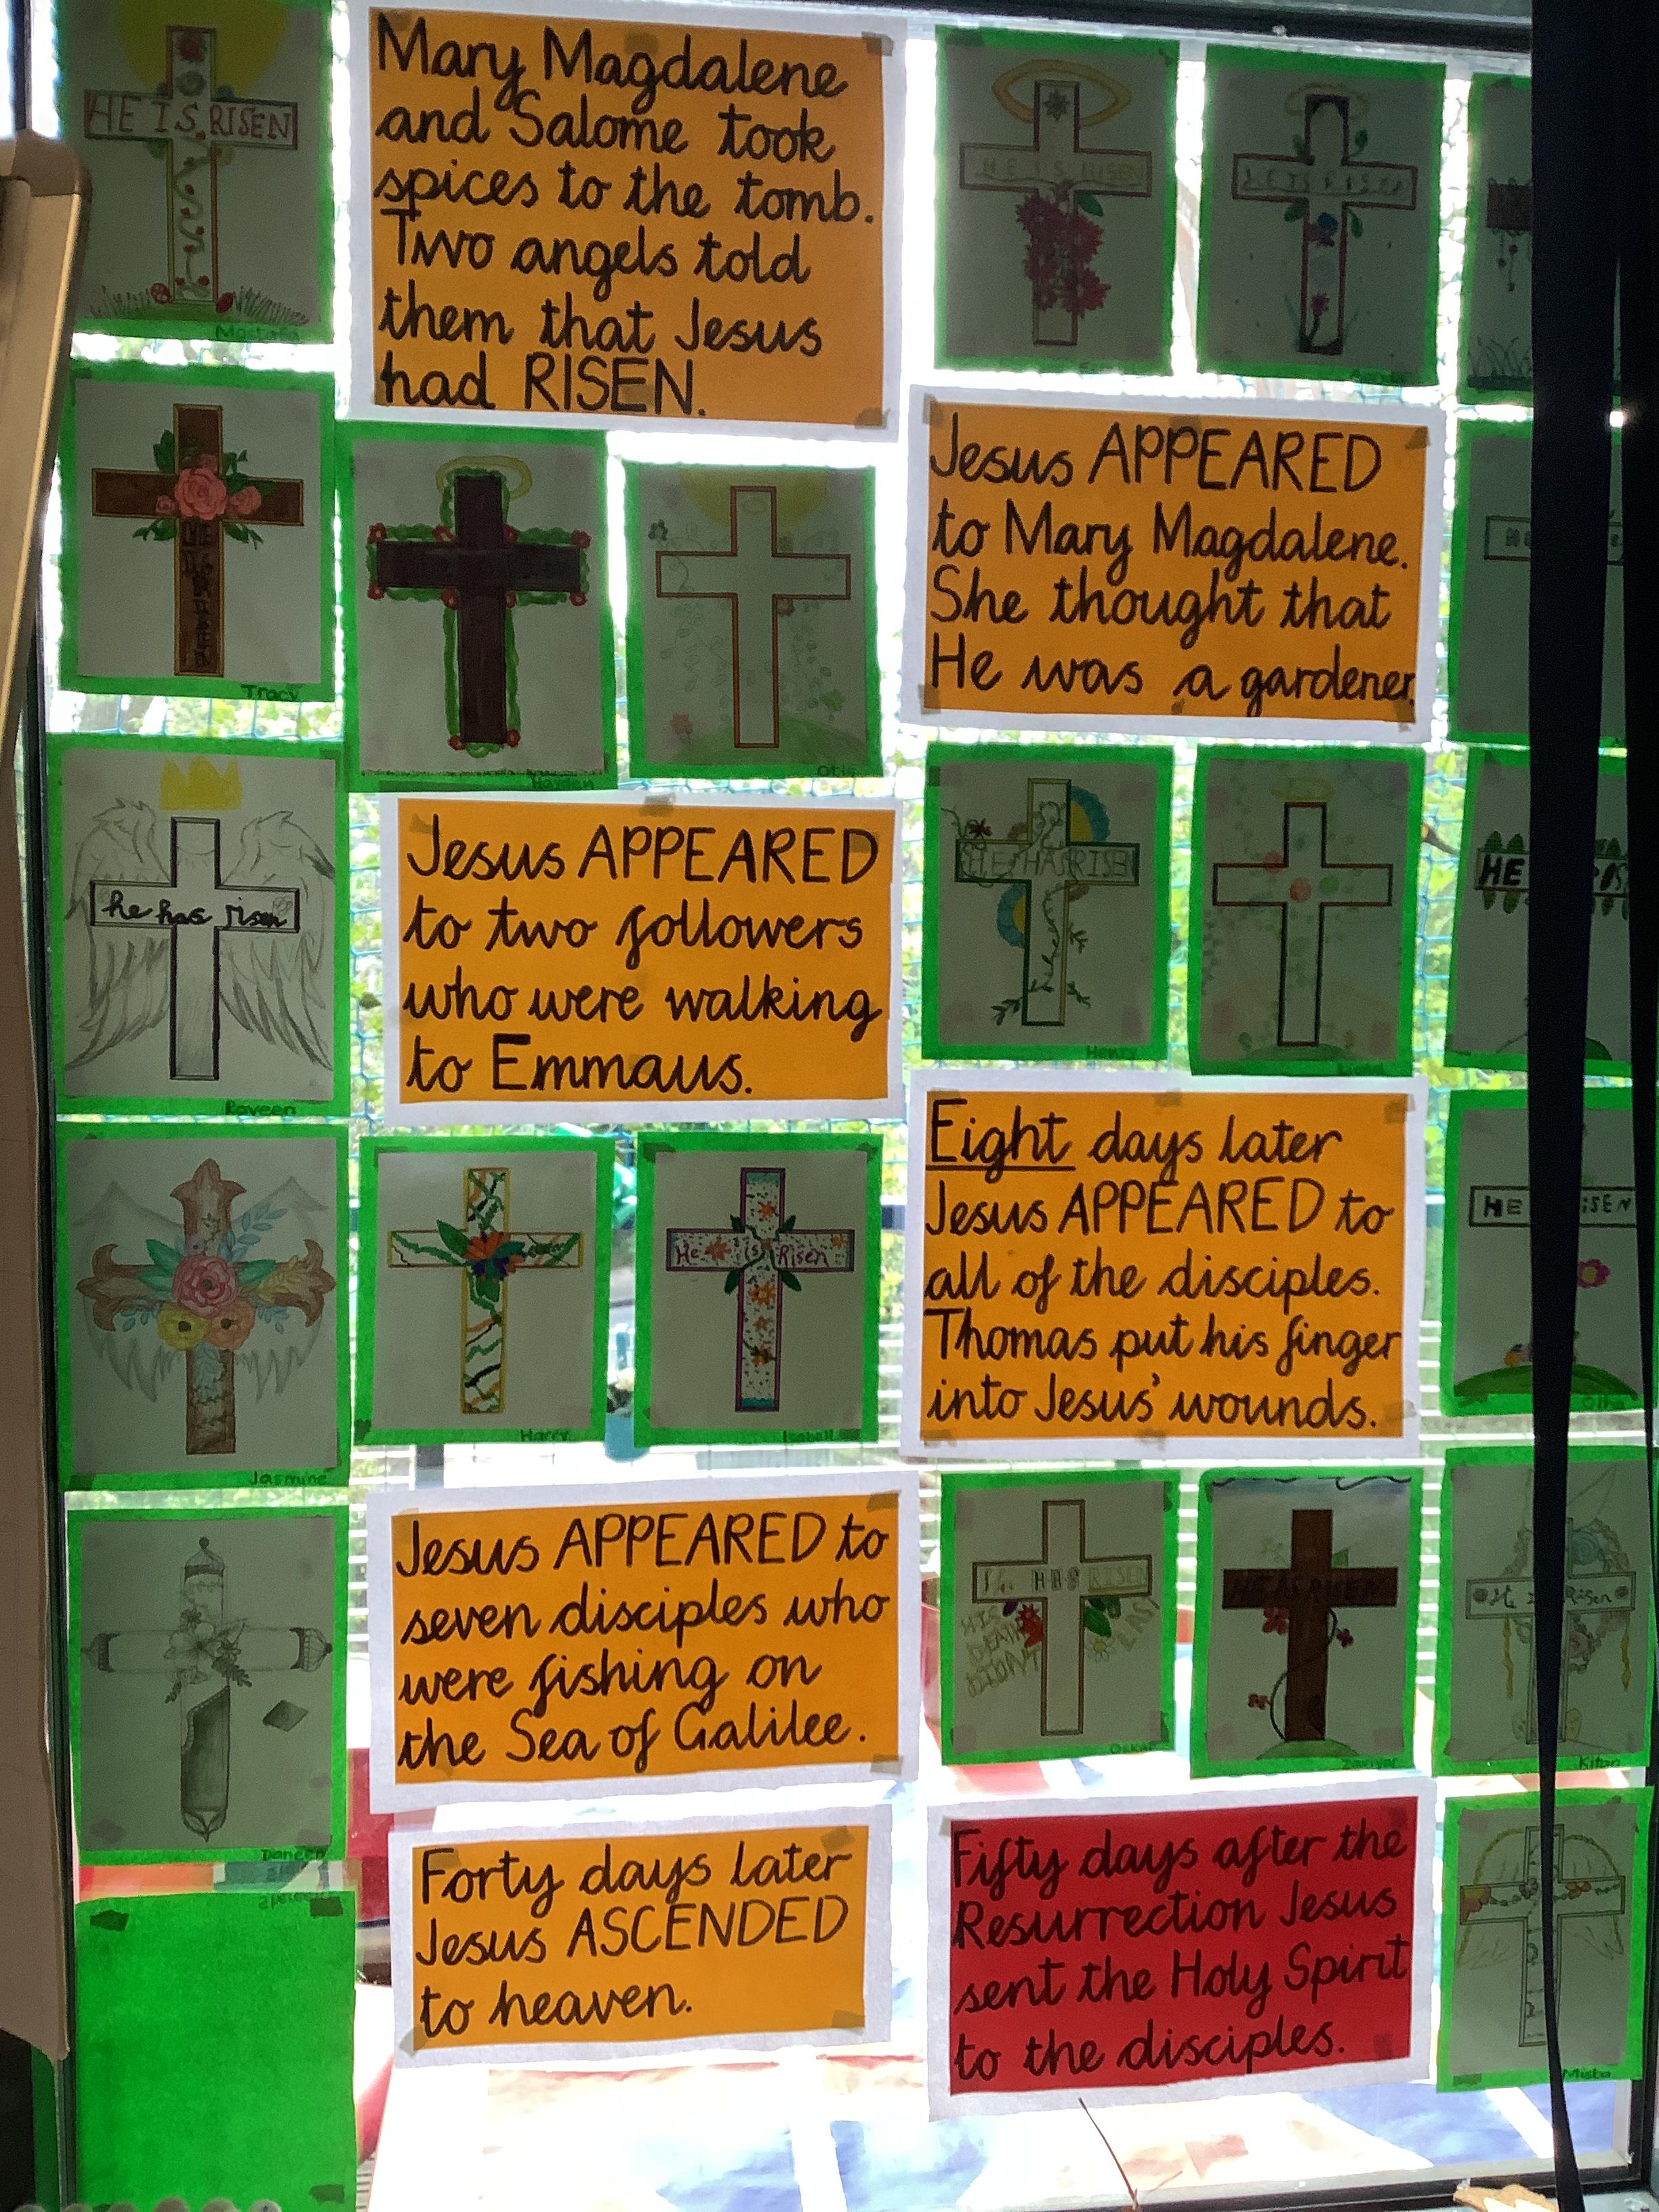 HE IS RISEN
Mostafa
Mary Magdalene
and Salome took
spices to the tomb.
Two angels told
them that Jesus
had RISEN.
HE IS RISEN
Tracy
Hayden
Otis
Jesus APPEARED
to Mary Magdalene.
She thought that
He was a gardener.
he has risen
Raveen
Jesus APPEARED
to two followers
who were walking
to Emmaus.
HE HAS RISEN
Henry
HE
Jasmine
Harry
He is Risen
Isabell
Eight days later
Jesus APPEARED to
all of the disciples.
Thomas put his finger
into Jesus' wounds.
HE RISEN
Daneen
Jesus APPEARED to
seven disciples who
were fishing on
the Sea of Galilee.
He HAS RISEN
HIS
DEATH
DIDN'T
LAST
Oskar
HE IS RISEN
Risen
Kitan
Forty days later
Jesus ASCENDED
to heaven.
Fifty days after the
Resurrection Jesus
sent the Holy Spirit
to the disciples.
Misba